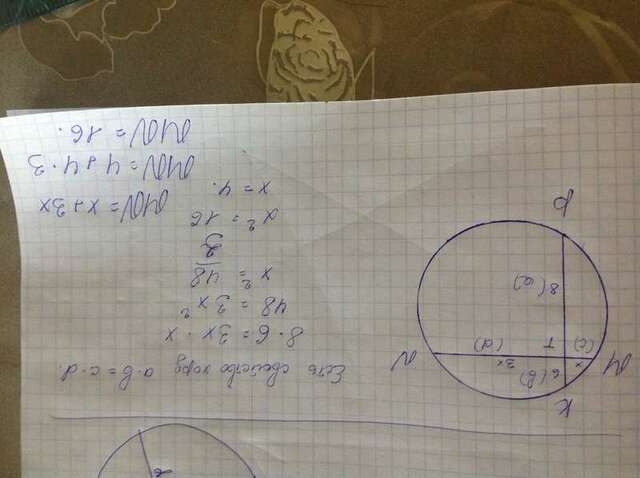 Есть свойство хорд a·b = c·d.
8·6 = 3x · x
48 = 3x²
x² = 48/3
x² = 16
x = 4.
MN = x + 3x
MN = 4 + 4·3
MN = 16.
K
6(b)
M
x
(c)
T
3x
(d)
N
8(a)
P